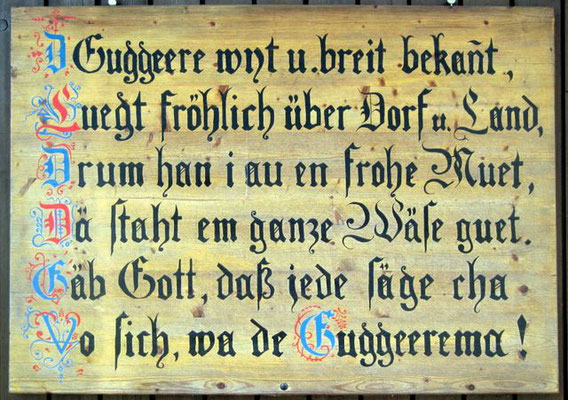 D Guggeere wyt u. breit bekañt,
Luegt fröhlich über Dorf u. Land,
Drum han i au en frohe Muet,
Dä staht em ganze Wäse guet.
Gäb Gott, daß jede säge cha
Vo sich, wa de Guggeerema!